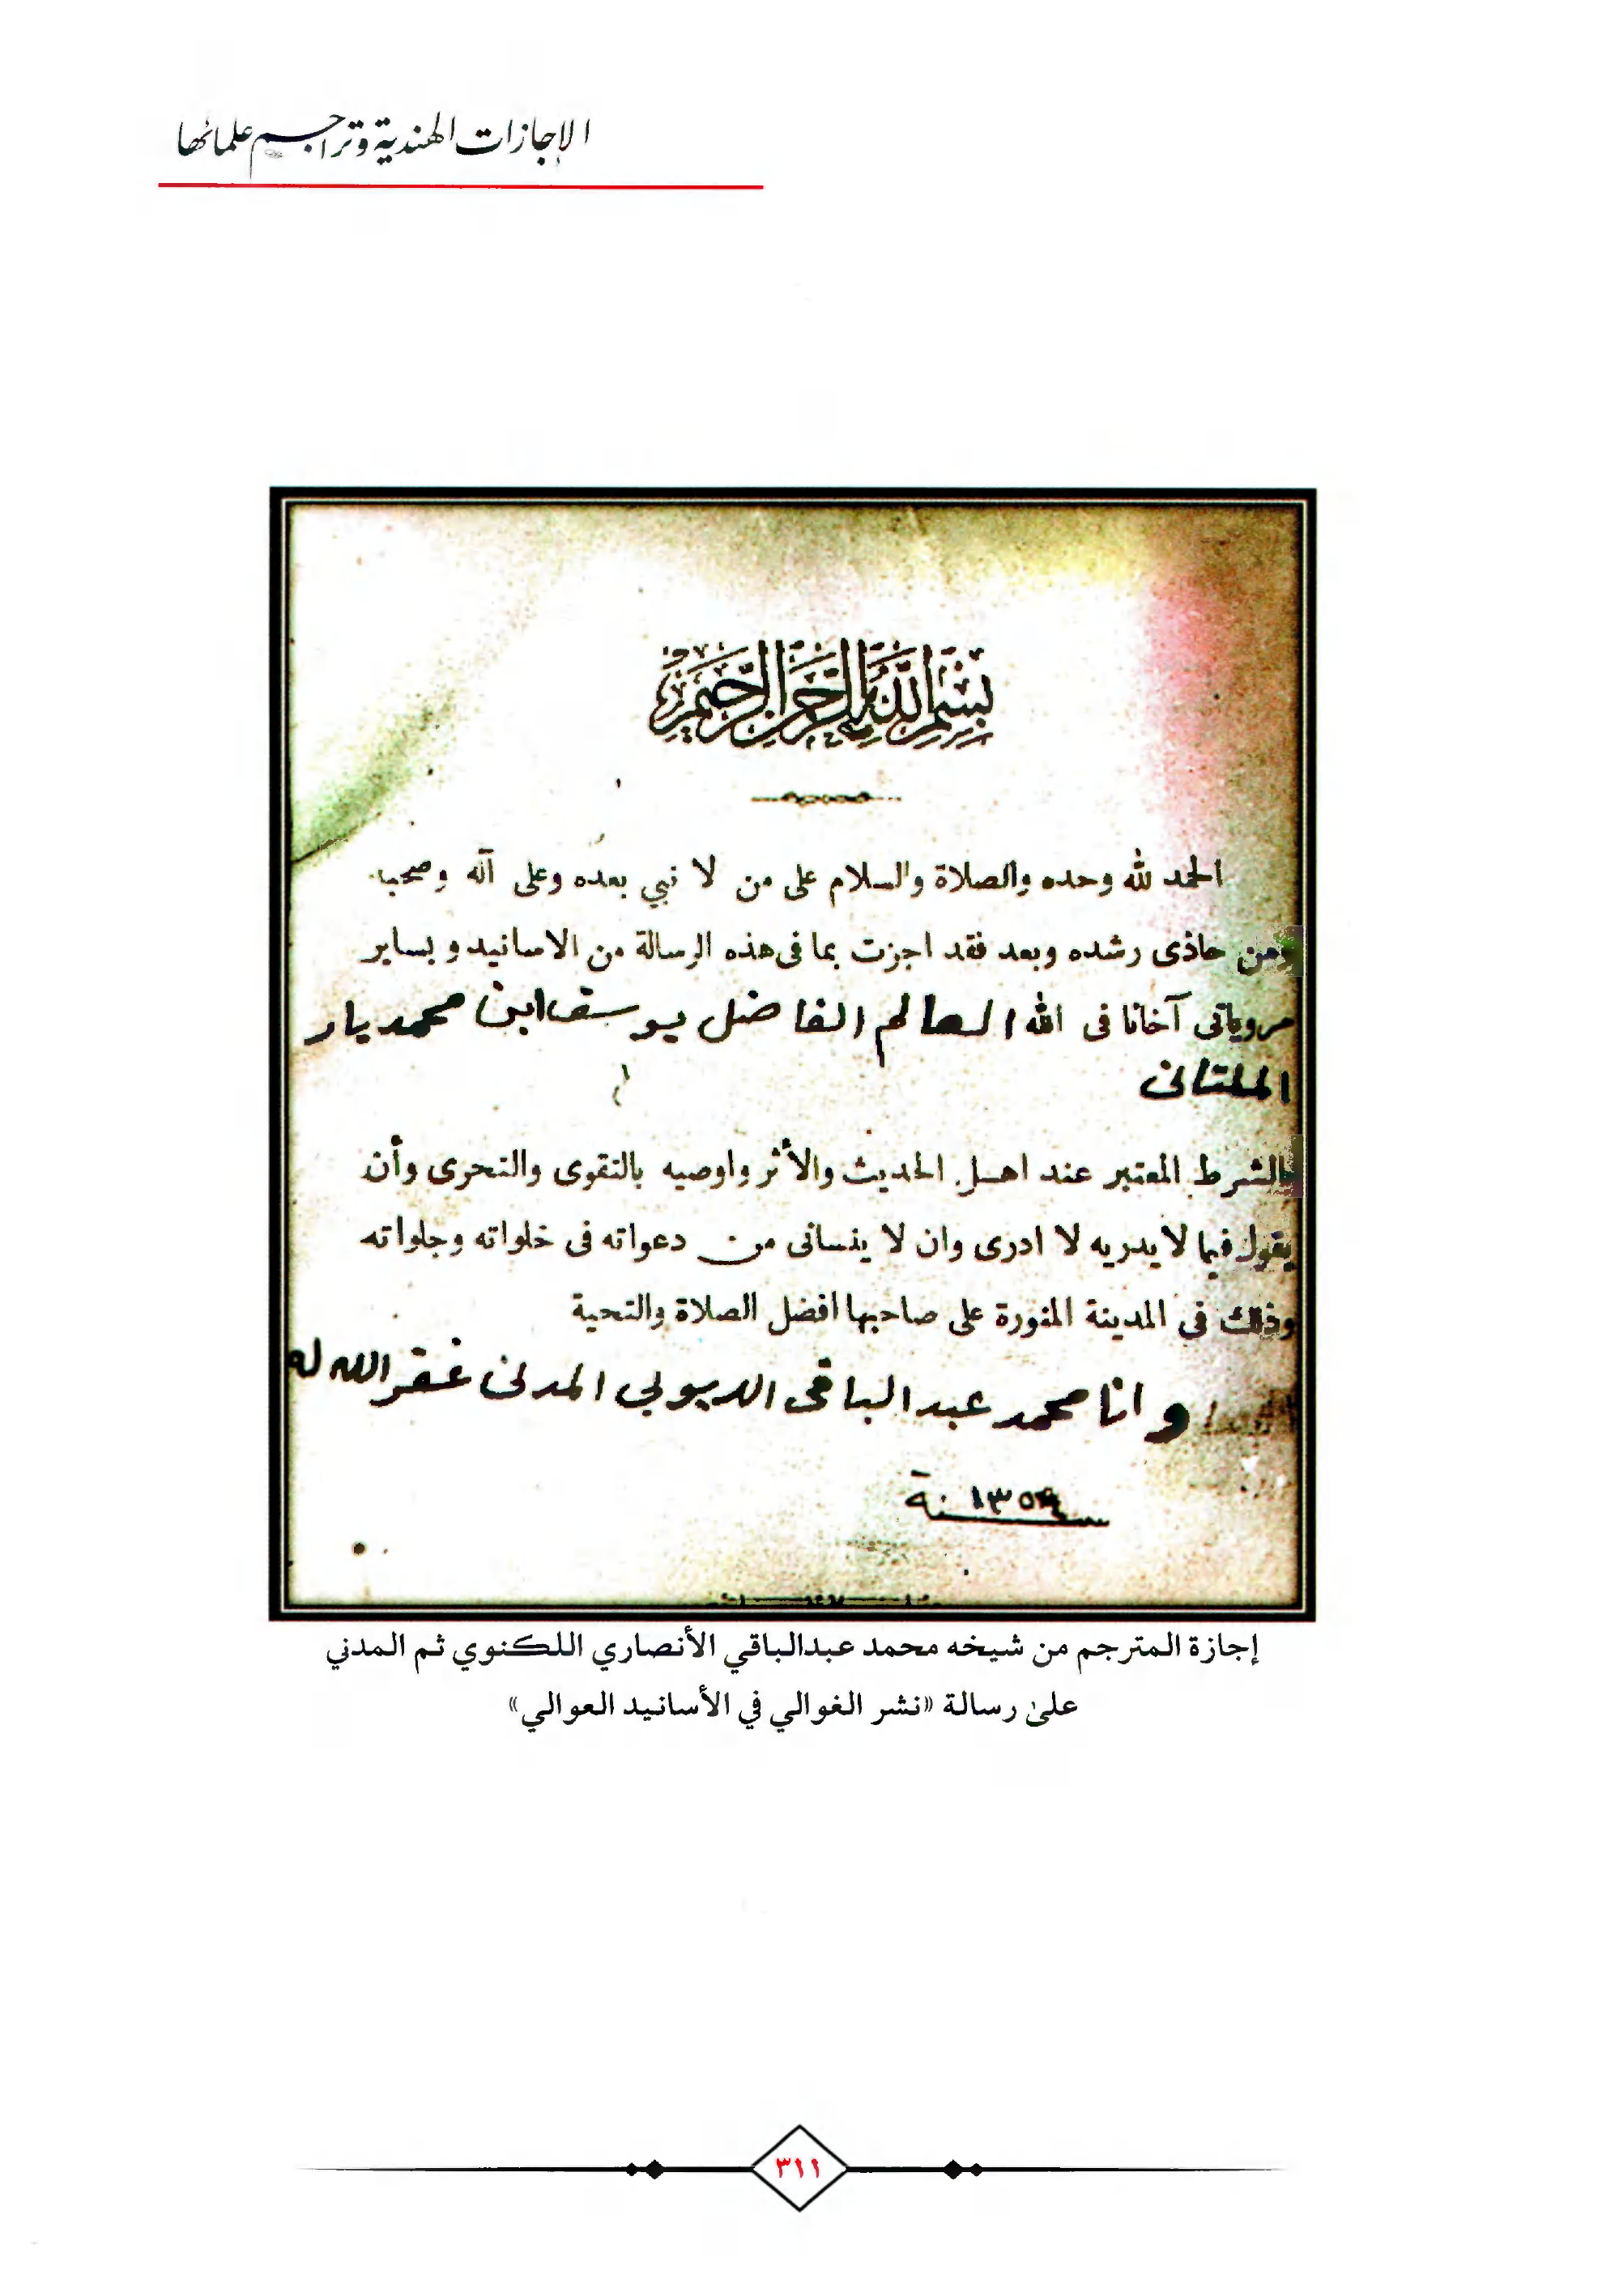 الإجازات الهندية وتراجم علمائها
بسم الله الرحمن الرحيم
الحمد لله وحده والصلاة والسلام على من لا نبي بعده وعلى آله وصحبه
ومن حاذى رشده وبعد فقد اجزت بما فى هذه الرسالة من الاسانيد وبساير
مروياتى آخانا فى الله العالم الفاضل يوسف ابن محمد يار
الملتانى
بالشرط المعتبر عند اهل الحديث والأثر واوصيه بالتقوى والتحرى وأن
يقول فيما لا يدريه لا ادرى وان لا ينسانى من دعواته فى خلواته وجلواته
وذلك فى المدينة المنورة على صاحبها افضل الصلاة والتحية
وانا محمد عبد الباقى المدنى غفر الله له
سنة
إجازة المترجم من شيخه محمد عبدالباقي الأنصاري اللكنوي ثم المدني
على رسالة «نشر الغوالي في الأسانيد العوالي»
٣١١